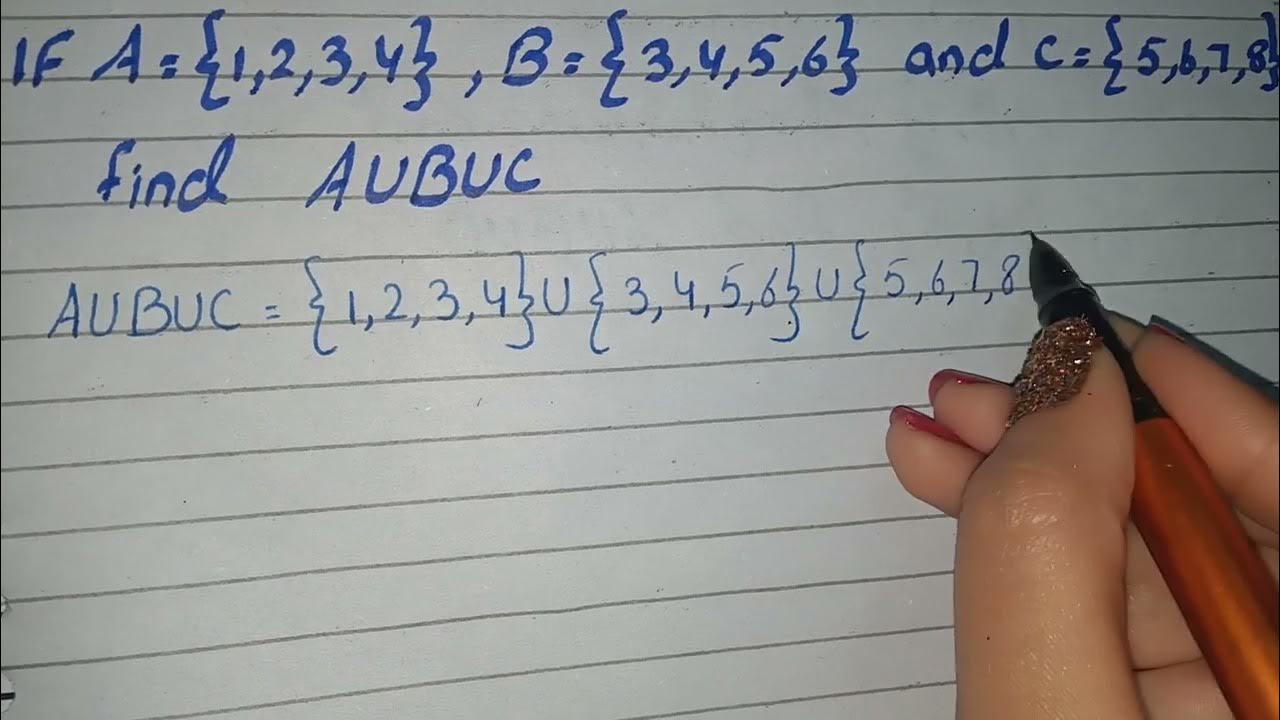 IF A = {1,2,3,4} , B = {3,4,5,6} and C = {5,6,7,8}
find AUBUC
AUBUC = {1,2,3,4}U{3,4,5,6}U{5,6,7,8